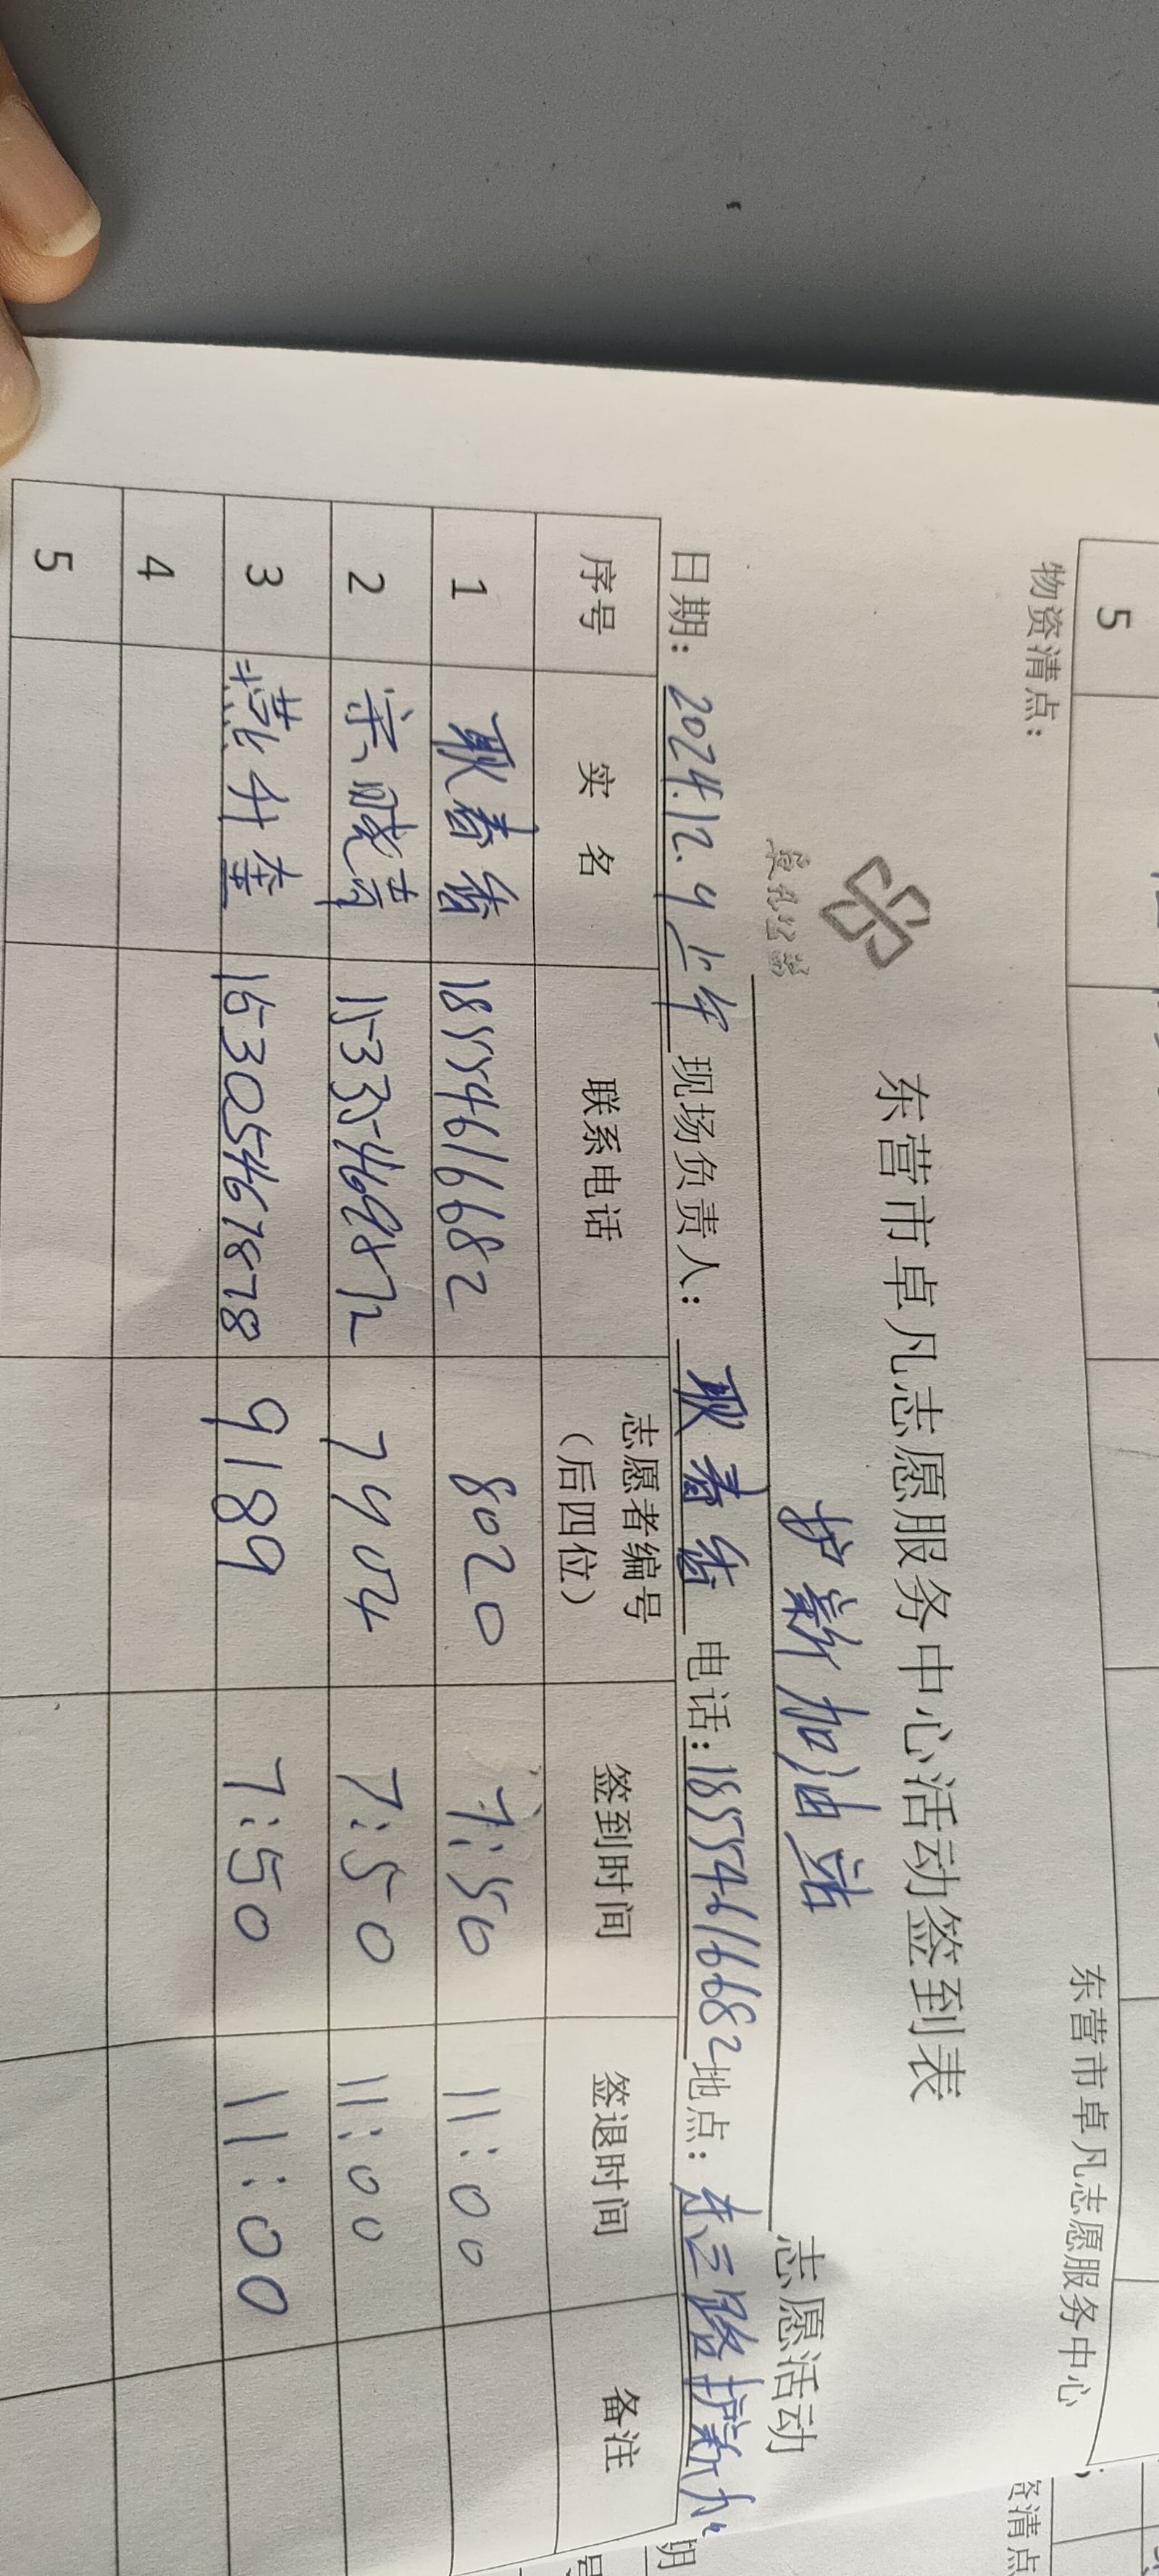 5
物资清点：
东营市卓凡志愿服务中心
卓凡公益
东营市卓凡志愿服务中心活动签到表
护薪加油站 志愿活动
日期：2024.12.9上午 现场负责人：耿春省 电话：18554661682 地点：东三路护薪加
序号 实名 联系电话 志愿者编号（后四位） 签到时间 签退时间 备注
1 耿春省 18554661682 8020 7:50 11:00
2 宗 15335469872 7404 7:50 11:00
3 15305467878 9189 7:50 11:00
4
5